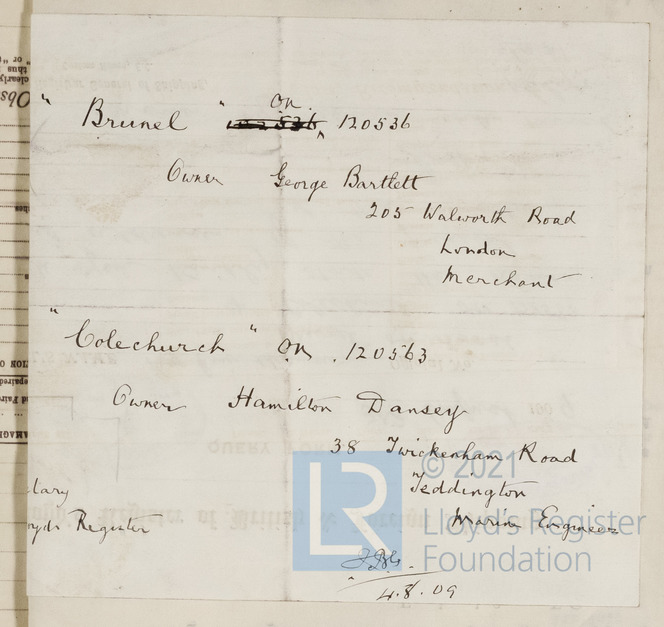 " Brunel " ON. 120536
Owner George Bartlett
205 Walworth Road
London
Merchant
" Colechurch " ON . 120563
Owner Hamilton Dansey
38 Twickenham Road
Teddington
Marine Engineer
4.8.09
yds Register
QUERY
LR
© 2021
Lloyd's Register
Foundation